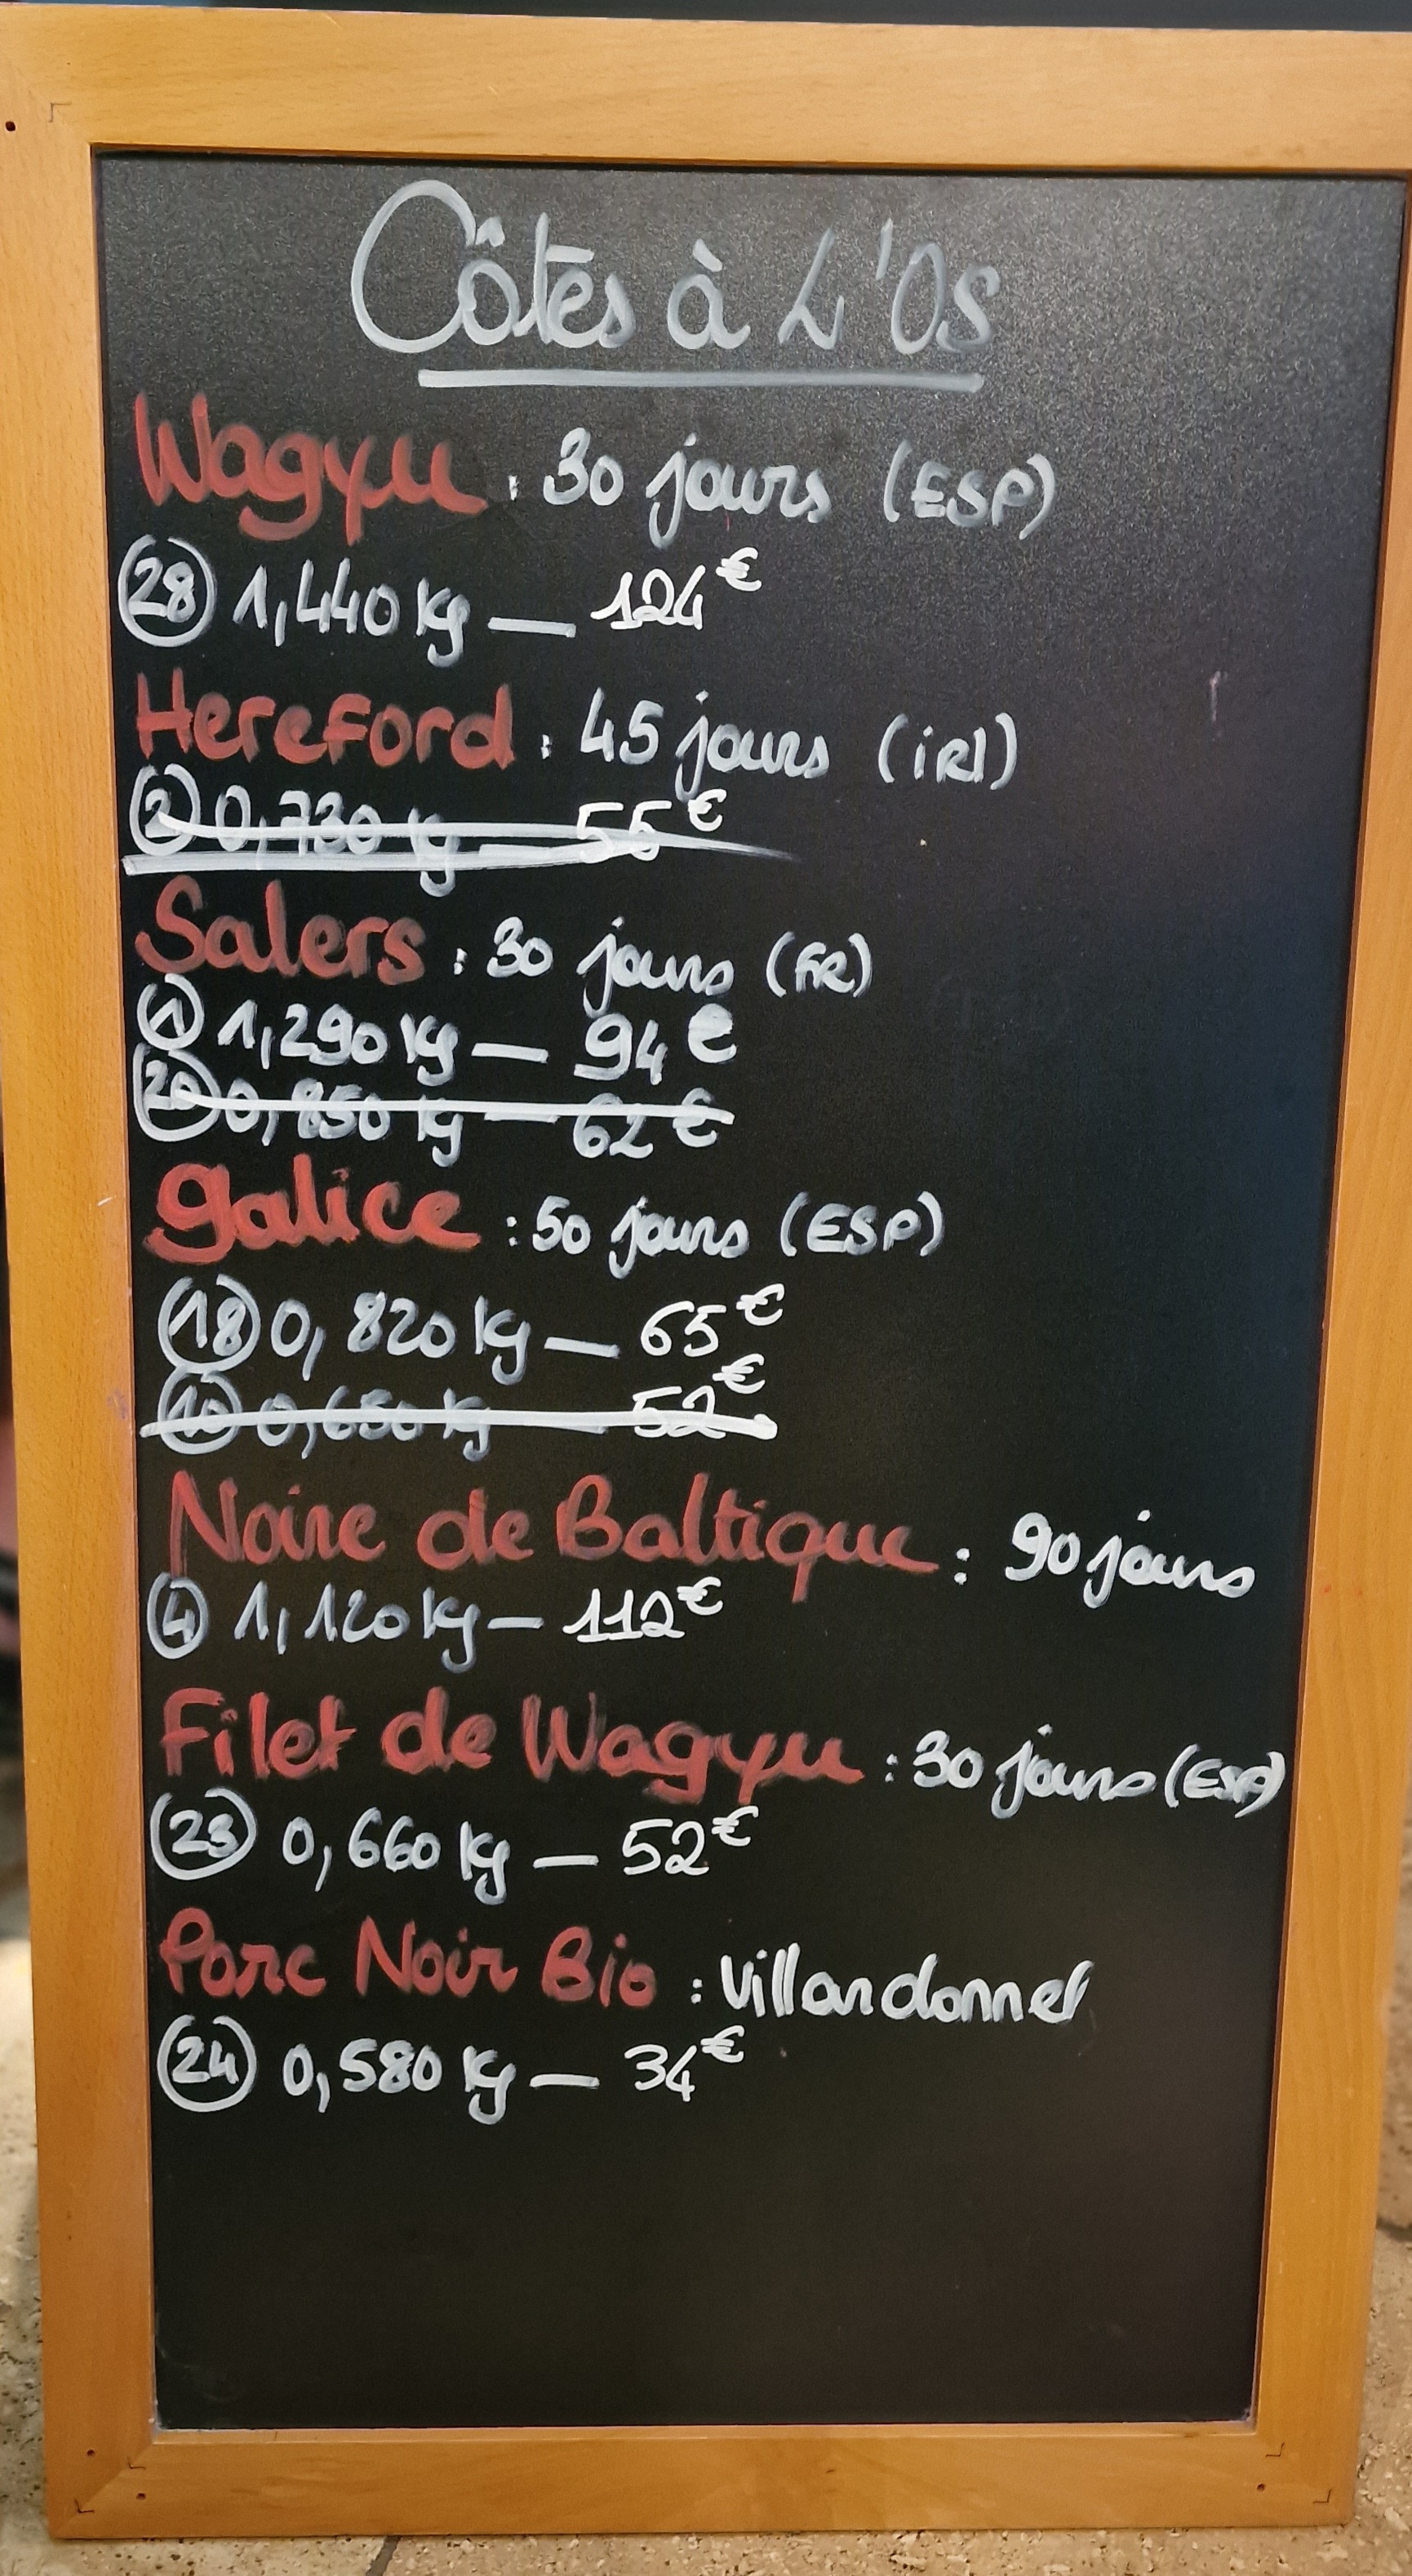 Côtes à L'Os
Wagyu : 30 jours (ESP)
28 1,440 kg — 124€
Hereford : 45 jours (iRl)
2 0,730 kg — 55€
Salers : 30 jours (FR)
1 1,290 kg — 94€
20 0,850 kg — 62€
galice : 50 jours (ESP)
18 0,820 kg — 65€
10 0,650 kg — 52€
Noire de Baltique : 90 jours
4 1,120 kg — 112€
Filet de Wagyu : 30 jours (ESP)
23 0,660 kg — 52€
Porc Noir Bio : Villandonnel
24 0,580 kg — 34€